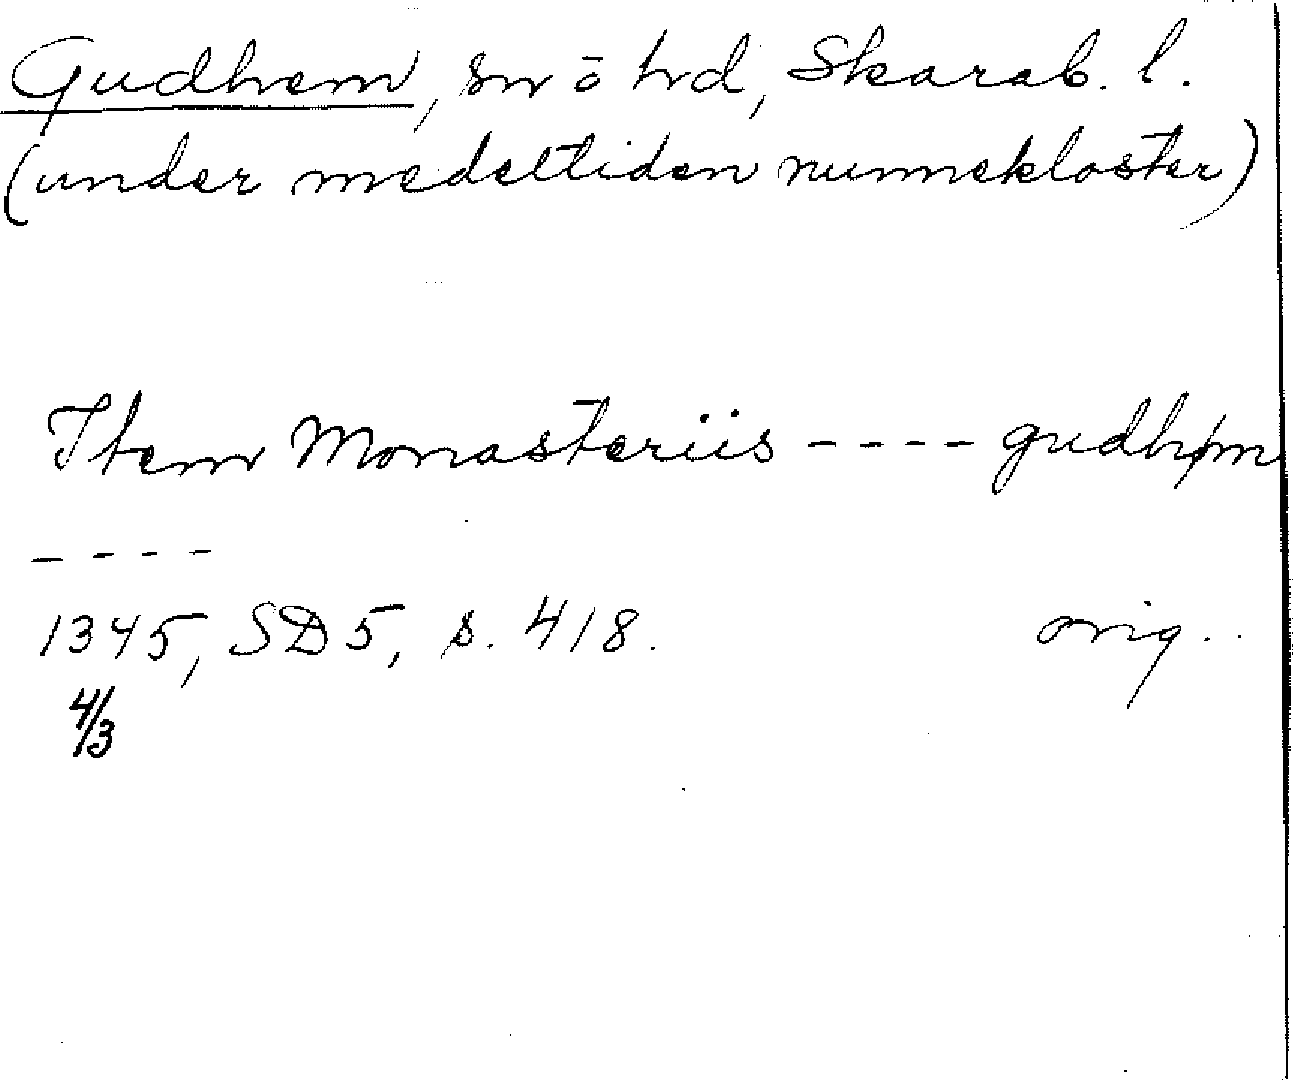 Gudhem, sn o hd, Skarab. l.
(under medeltiden nunnekloster)
Item Monasteriis ---- gudhøm
----
1345, SD 5, s. 418. orig..
4/3